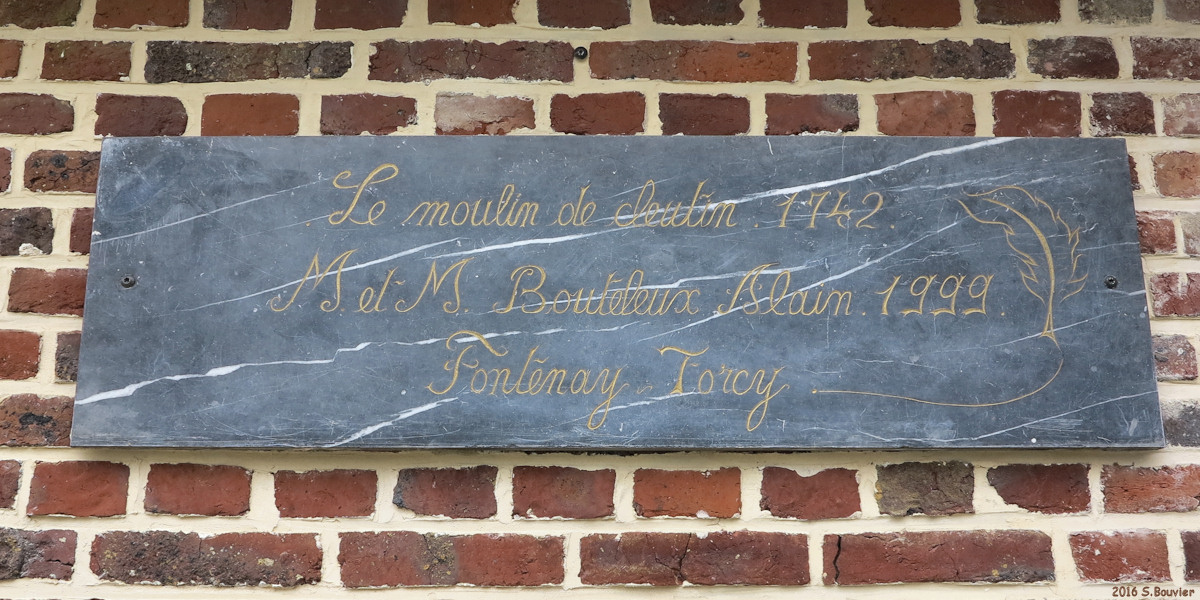 Le moulin de cleutin. 1742.
M. et M. Bouteleux Alain. 1999.
Fontenay - Torcy
2016 S.Bouvier